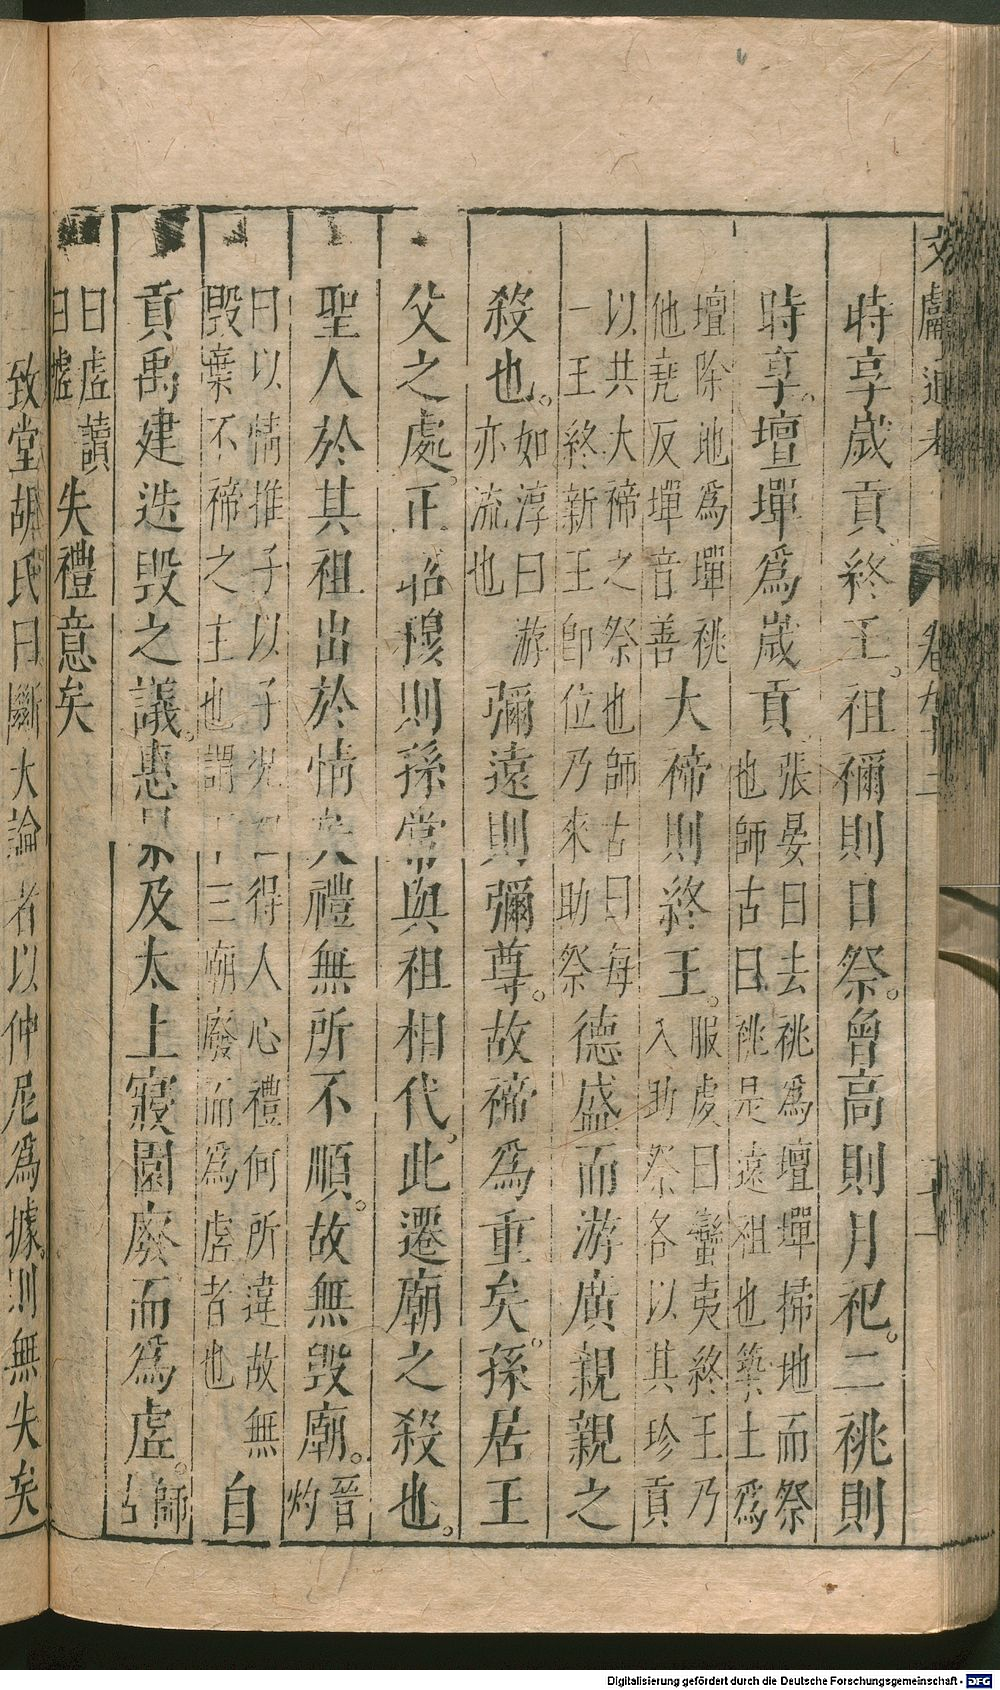 文獻通考 卷九十二
時享歲貢終王。祖禰則日祭。曾高則月祀。二祧則
時享。壇墠爲歲貢張晏曰去祧爲壇墠掃地而祭也師古曰祧是遠祖也築土爲
壇除地爲墠祧他堯反墠音善大禘則終王。服虔曰蠻夷終王乃入助祭各以其珍貢
以共大禘之祭也師古曰每一王終新王卽位乃來助祭德盛而游廣親親之
殺也。如淳曰游亦流也彌遠則彌尊。故禘爲重矣。孫居王
父之處。正昭穆則孫常與祖相代。此遷廟之殺也。
聖人於其祖出於情矣禮無所不順。故無毀廟。晉灼
曰以情推子以子況祖得人心禮何所違故無毀棄不禘之主也謂三廟廢而爲虛者也自
貢禹建迭毀之議。惠景及太上寢園廢而爲虛。師古
曰虛讀曰墟失禮意矣
致堂胡氏曰斷大論者以仲尼爲據。則無失矣
Digitalisierung gefördert durch die Deutsche Forschungsgemeinschaft - DFG